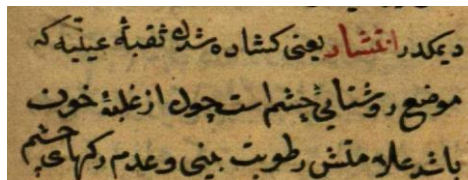 دیمکدر انتشار یعنی کشاده شدن ثقبهٔ عینیه که
موضع روشنایی چشم است چون از غلبهٔ خون
باشد علامتش رطوبت بینی و عدم رکهای چشم